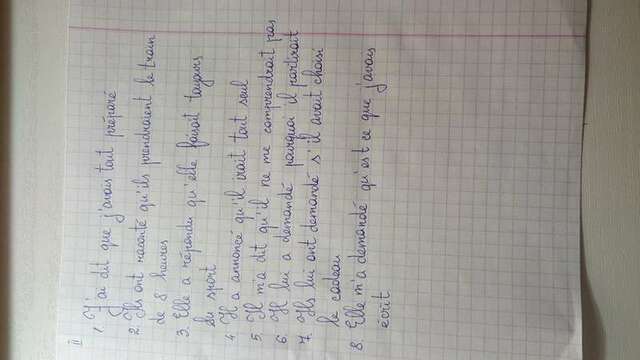 II
1. J'ai dit que j'avais tout préparé
2. Ils ont raconté qu'ils prendraient le train
de 8 heures
3. Elle a répondu qu'elle faisait toujours
du sport
4 Il a annoncé qu'il irait tout seul
5. Il m'a dit qu'il ne me comprendrait pas
6 Il lui a demandé pourquoi il partirait
7. Ils lui ont demandé s'il avait choisi
le cadeau
8. Elle m'a demandé qu'est ce que j'avais
écrit